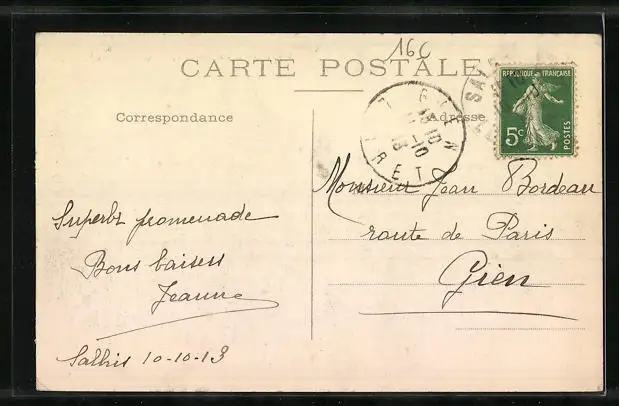 16C
CARTE POSTALE
Correspondance
Adresse
RÉPUBLIQUE FRANÇAISE
5c
POSTES
GIEN
10-10
13
LOIRET
Monsieur Jean Bordeau
route de Paris
Gien
Superbe promenade
Bons baisers
Jeanne
Salbris 10-10-13